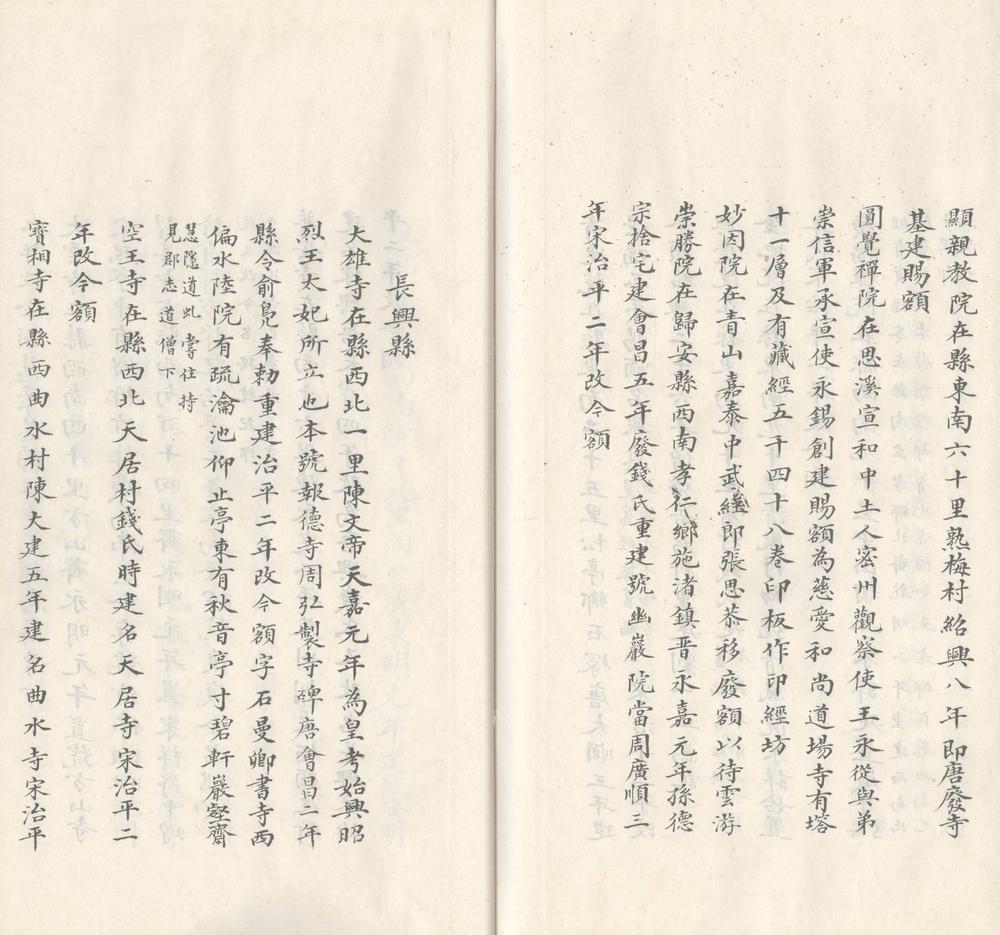 顯親教院在縣東南六十里熟梅村紹興八年即唐廢寺
基建賜額
圓覺禪院在思溪宣和中土人密州觀察使王永從與弟
崇信軍承宣使永錫創建賜額為慈愛和尚道場寺有塔
十一層及有藏經五千四十八卷印板作印經坊
妙因院在青山嘉泰中武經郎張思恭移廢額以待雲游
崇勝院在歸安縣西南孝仁鄉施渚鎮晉永嘉元年孫德
宗捨宅建會昌五年廢錢氏重建號幽巖院當周廣順三
年宋治平二年改今額
長興縣
大雄寺在縣西北一里陳文帝天嘉元年為皇考始興昭
烈王太妃所立也本號報德寺周弘製寺碑唐會昌二年
縣令俞鳧奉勅重建治平二年改今額字石曼卿書寺西
偏水陸院有疏瀹池仰止亭東有秋音亭寸碧軒巖壑齋
慧隱道虬嘗住持
見郡志道僧下
空王寺在縣西北天居村錢氏時建名天居寺宋治平二
年改今額
寶相寺在縣西曲水村陳大建五年建名曲水寺宋治平